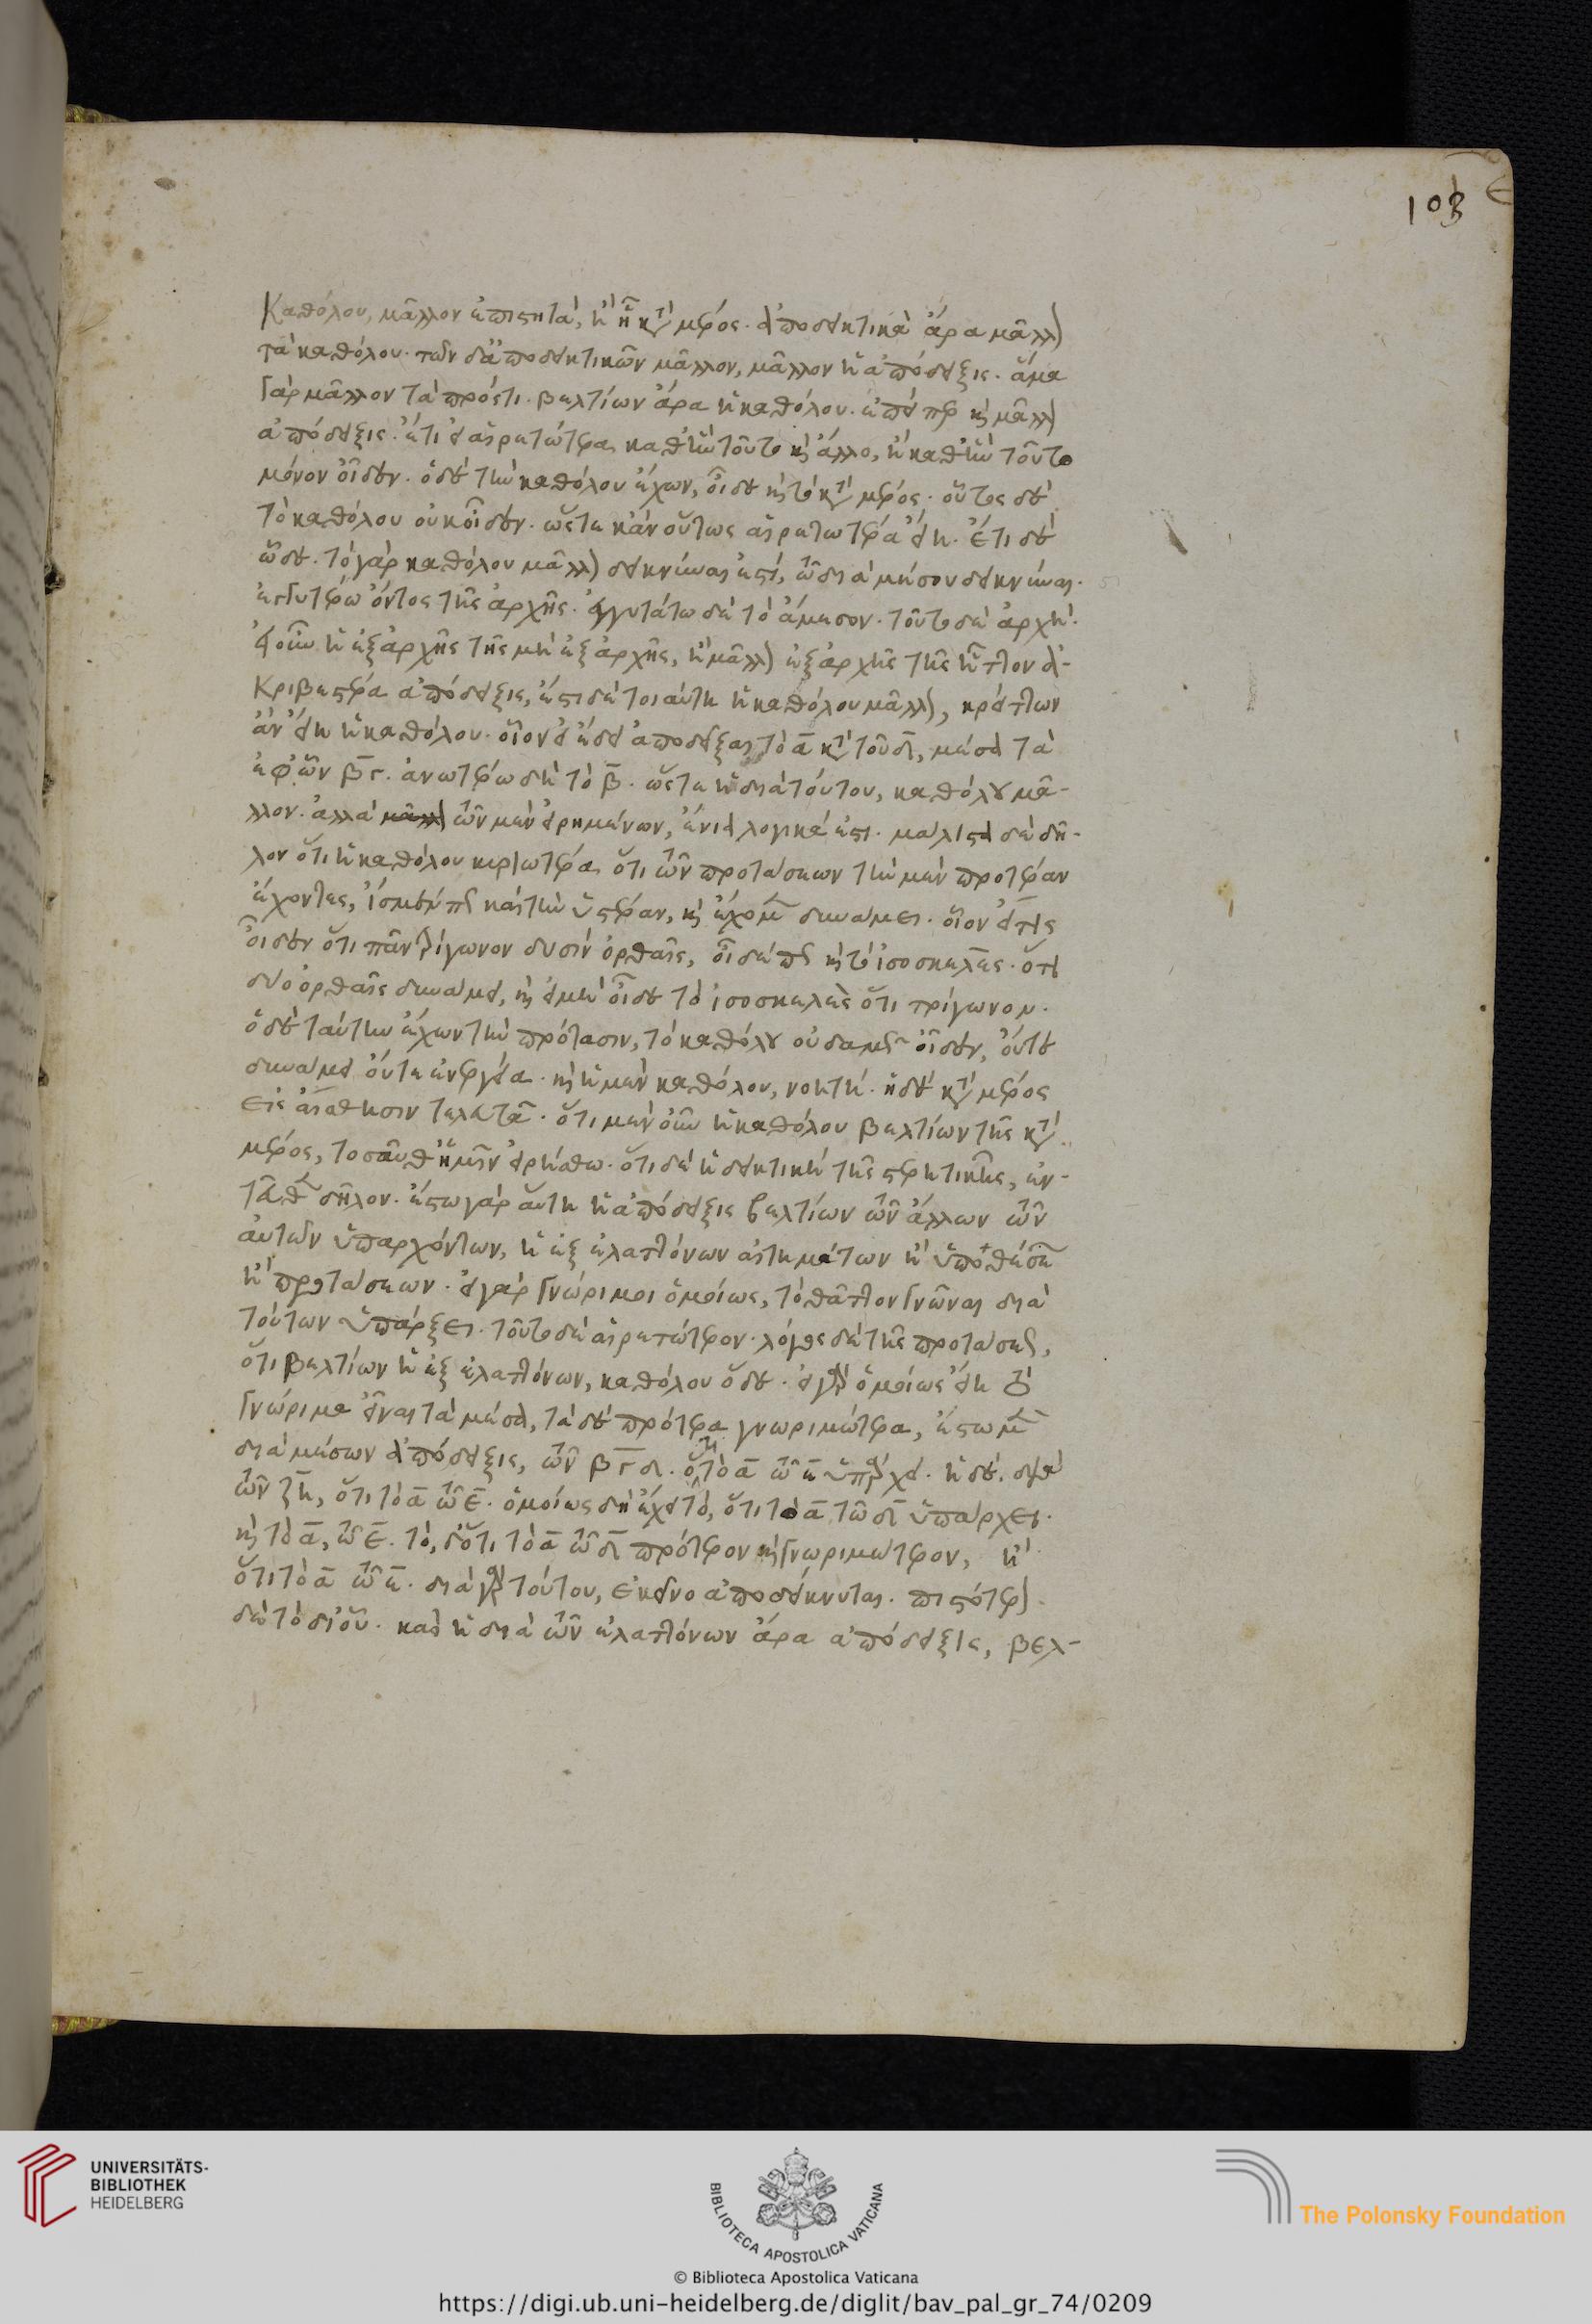 103
Καθόλου, μᾶλλον ἐπιστητὰ, ἢ ᾗ κατὰ μέρος. ἀποδεικτικὰ ἄρα μᾶλλον
τὰ καθόλου. τῶν δ' ἀποδεικτικῶν μᾶλλον, μᾶλλον ἡ ἀπόδειξις. ἅμα
γὰρ μᾶλλον τὰ πρός τι. βελτίων ἄρα ἡ καθόλου. ἐπείπερ καὶ μᾶλλον
ἀπόδειξις. ἔτι εἰ αἱρετώτερα καθ' ἣν τοῦτο καὶ ἄλλο, ἢ καθ' ἣν τοῦτο
μόνον οἶδεν. ὁ δὲ τὴν καθόλου ἔχων, οἶδε καὶ τὸ κατὰ μέρος. οὗτος δὲ
τὸ καθόλου οὐκ οἶδεν. ὥστε κἂν οὕτως αἱρετωτέρα εἴη. ἔτι δὲ
ὧδε. τὸ γὰρ καθόλου μᾶλλον δεικνύναι ἐστί, τῷ διὰ μέσου δεικνύναι
ἐγγυτέρω ὄντος τῆς ἀρχῆς. ἐγγυτάτω δὲ τὸ ἄμεσον. τοῦτο δὲ ἀρχή.
εἰ οὖν ἡ ἐξ ἀρχῆς τῆς μὴ ἐξ ἀρχῆς, ἡ μᾶλλον ἐξ ἀρχῆς τῆς ἧττον ἀ-
κριβεστέρα ἀπόδειξις, ἔστι δὲ τοιαύτη ἡ καθόλου μᾶλλον, κρείττων
ἂν εἴη ἡ καθόλου. οἷον εἰ ἔδει ἀποδεῖξαι τὸ α κατὰ τοῦ δ, μέσα τὰ
ἐφ' ὧν β γ. ἀνωτέρω δὴ τὸ β. ὥστε ἡ διὰ τούτου, καθόλου μᾶ-
λλον. ἀλλὰ τῶν μὲν εἰρημένων, ἔνια λογικά ἐστι. μάλιστα δὲ δῆ-
λον ὅτι ἡ καθόλου κυριωτέρα, ὅτι τῶν προτάσεων τὴν μὲν προτέραν
ἔχοντες, ἴσμεν πως καὶ τὴν ὑστέραν, καὶ ἔχομεν δυνάμει. οἷον εἴ τις
οἶδεν ὅτι πᾶν τρίγωνον δυσὶν ὀρθαῖς, οἶδέ πως καὶ τὸ ἰσοσκελὲς. ὅτι
δύο ὀρθαῖς δυνάμει, καὶ εἰ μὴ οἶδε τὸ ἰσοσκελὲς ὅτι τρίγωνον.
ὁ δὲ ταύτην ἔχων τὴν πρότασιν, τὸ καθόλου οὐδαμῶς οἶδεν, οὔτε
δυνάμει οὔτε ἐνεργείᾳ. καὶ ἡ μὲν καθόλου, νοητή. ἡ δὲ κατὰ μέρος
εἰς αἴσθησιν τελευτᾷ. ὅτι μὲν οὖν ἡ καθόλου βελτίων τῆς κατὰ
μέρος, τοσαῦθ' ἡμῖν εἰρήσθω. ὅτι δὲ ἡ δεικτικὴ τῆς στερητικῆς, ἐν-
τεῦθεν δῆλον. ἔστω γὰρ αὕτη ἡ ἀπόδειξις βελτίων τῶν ἄλλων τῶν
αὐτῶν ὑπαρχόντων, ἡ ἐξ ἐλαττόνων αἰτημάτων ἢ ὑποθέσεων
ἢ προτάσεων. εἰ γὰρ γνώριμοι ὁμοίως, τὸ θᾶττον γνῶναι διὰ
τούτων ὑπάρξει. τοῦτο δὲ αἱρετώτερον. λόγος δὲ τῆς προτάσεως,
ὅτι βελτίων ἡ ἐξ ἐλαττόνων, καθόλου ὅδε. εἰ γὰρ ὁμοίως εἴη τὸ
γνώριμα εἶναι τὰ μέσα, τὰ δὲ πρότερα γνωριμώτερα, ἔστω μὲν
διὰ μέσων ἀπόδειξις, τῶν β γ δ. ὅτι τὸ α τῷ ε ὑπάρχει. ἡ δὲ, διὰ
τῶν ζ η, ὅτι τὸ α τῷ ε. ὁμοίως δὴ ἔχει τὸ, ὅτι τὸ α τῷ δ ὑπάρχει.
καὶ τὸ α, τῷ ε. τὸ, δ' ὅτι τὸ α τῷ δ πρότερον καὶ γνωριμώτερον, ἢ
ὅτι τὸ α τῷ ε. διὰ γὰρ τούτου, ἐκεῖνο ἀποδείκνυται. πιστότερον
δὲ τὸ δι' οὗ. καὶ ἡ διὰ τῶν ἐλαττόνων ἄρα ἀπόδειξις, βελ-
UNIVERSITÄTS-
BIBLIOTHEK
HEIDELBERG
BIBLIOTECA APOSTOLICA VATICANA
The Polonsky Foundation
© Biblioteca Apostolica Vaticana
https://digi.ub.uni-heidelberg.de/diglit/bav_pal_gr_74/0209